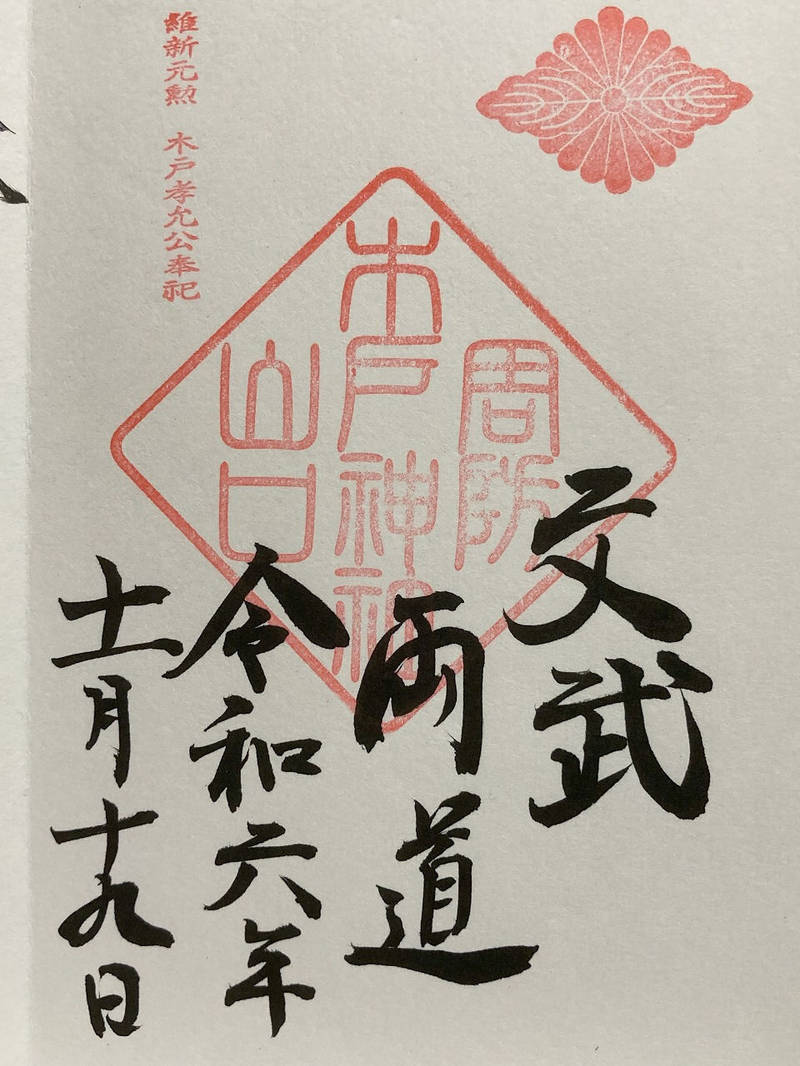 周防
木戸神社
山口
維新元勲 木戸孝允公奉祀
文武
両道
令和六年
十一月十九日